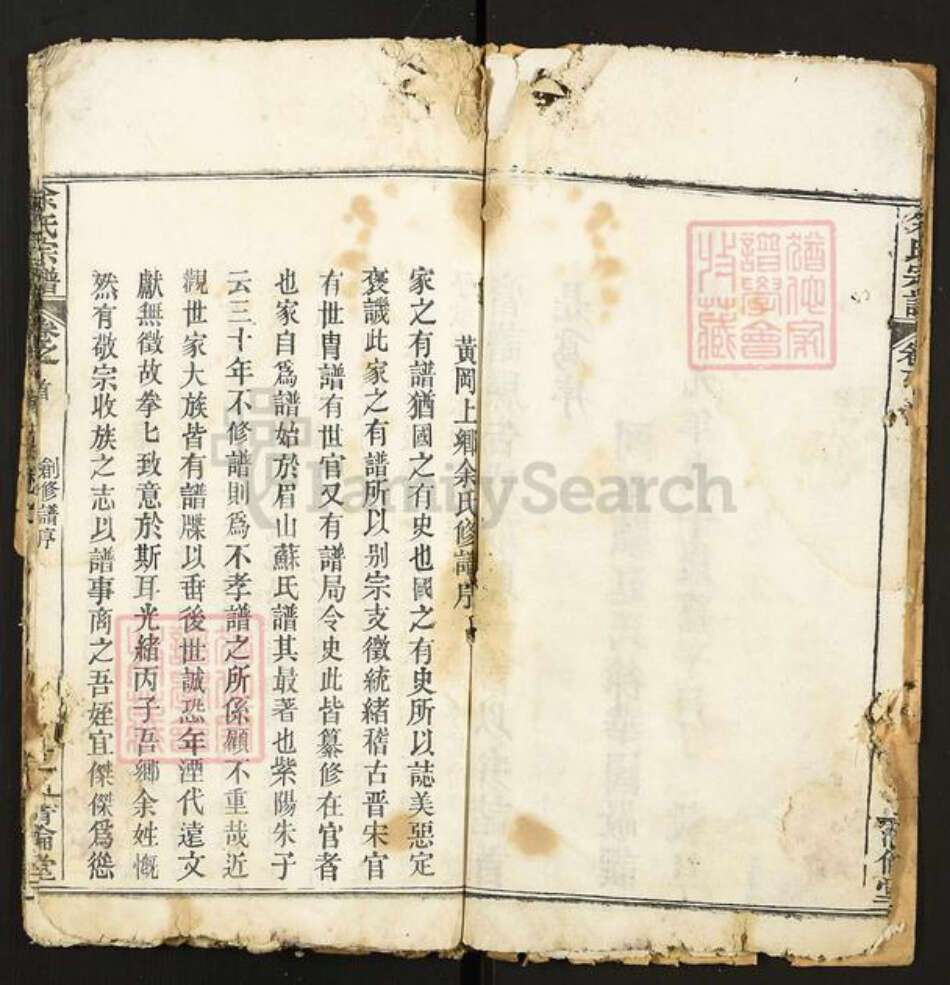 余氏宗譜
卷之
猶他家
譜學會
收藏
黃岡上鄉余氏修譜序
家之有譜猶國之有史也國之有史所以誌美惡定
褒譏此家之有譜所以别宗支徵統緒稽古晋宋官
有世胄譜有世官又有譜局令史此皆纂修在官者
也家自為譜始於眉山蘇氏譜其最著也紫陽朱子
云三十年不修譜則為不孝譜之所係顧不重哉近
觀世家大族皆有譜牒以垂後世誠恐年湮代遠文
獻無徵故拳匕致意於斯耳光緒丙子吾鄉余姓慨
然有敬宗收族之志以譜事商之吾姪宜傑傑為慫
余氏宗譜
卷之首
創修譜序
倫堂
FamilySearch